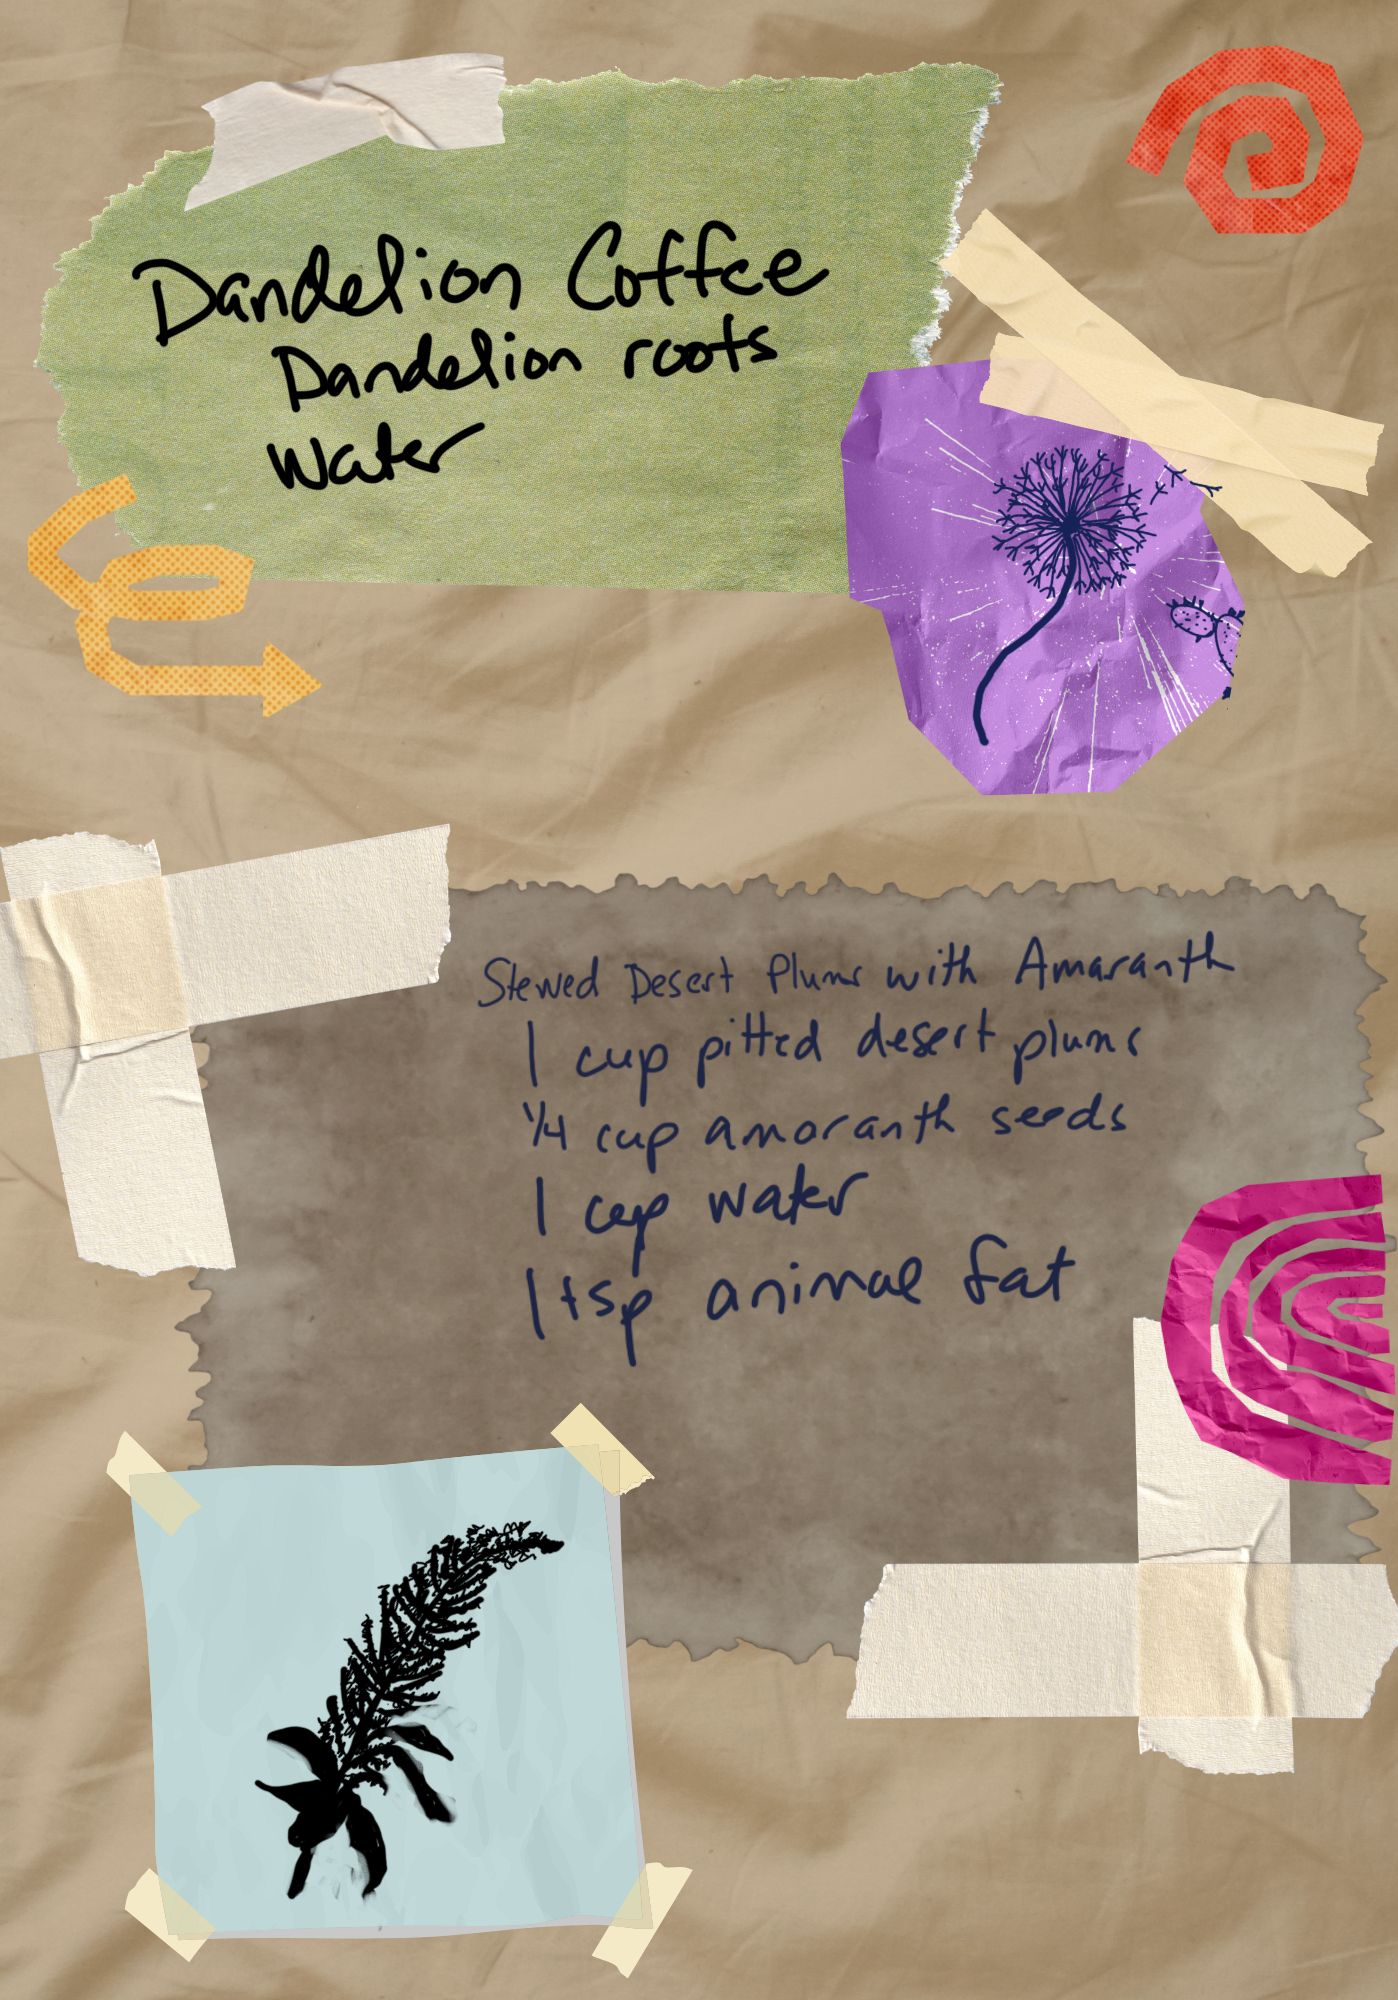 Dandelion Coffee
Dandelion roots
Water
Stewed Desert Plums with Amaranth
1 cup pitted desert plums
1/4 cup amaranth seeds
1 cup water
1 tsp animal fat